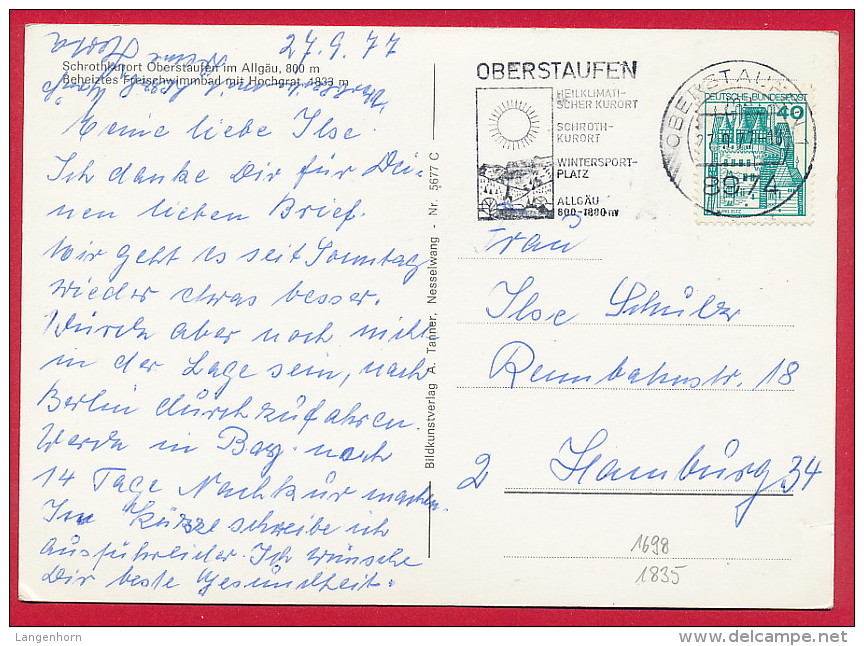 27.9.77
Schrothkurort Oberstaufen im Allgäu, 800 m
Beheiztes Freischwimmbad mit Hochgrat, 1833 m
Meine liebe Ilse.
Ich danke Dir für Dei-
nen lieben Brief.
Mir geht es seit Sonntag
wieder etwas besser.
Würde aber noch nicht
in der Lage sein, nach
Berlin durchzufahren.
Werde in Bay. noch
14 Tage Nachkur machen.
In Kürze schreibe ich
ausführlicher. Ich wünsche
Dir beste Gesundheit.
Bildkunstverlag A. Tanner, Nesselwang - Nr. 5677 C
OBERSTAUFEN
HEILKLIMATI-
SCHER KURORT
SCHROTH-
KURORT
WINTERSPORT-
PLATZ
ALLGÄU
800-1800 m
OBERSTAUFEN 1
8974
DEUTSCHE BUNDESPOST
40
Frau
Ilse Schulz
Rennbahnstr. 18
2 Hamburg 34
1698
1835
Langenhorn
delcampe.net